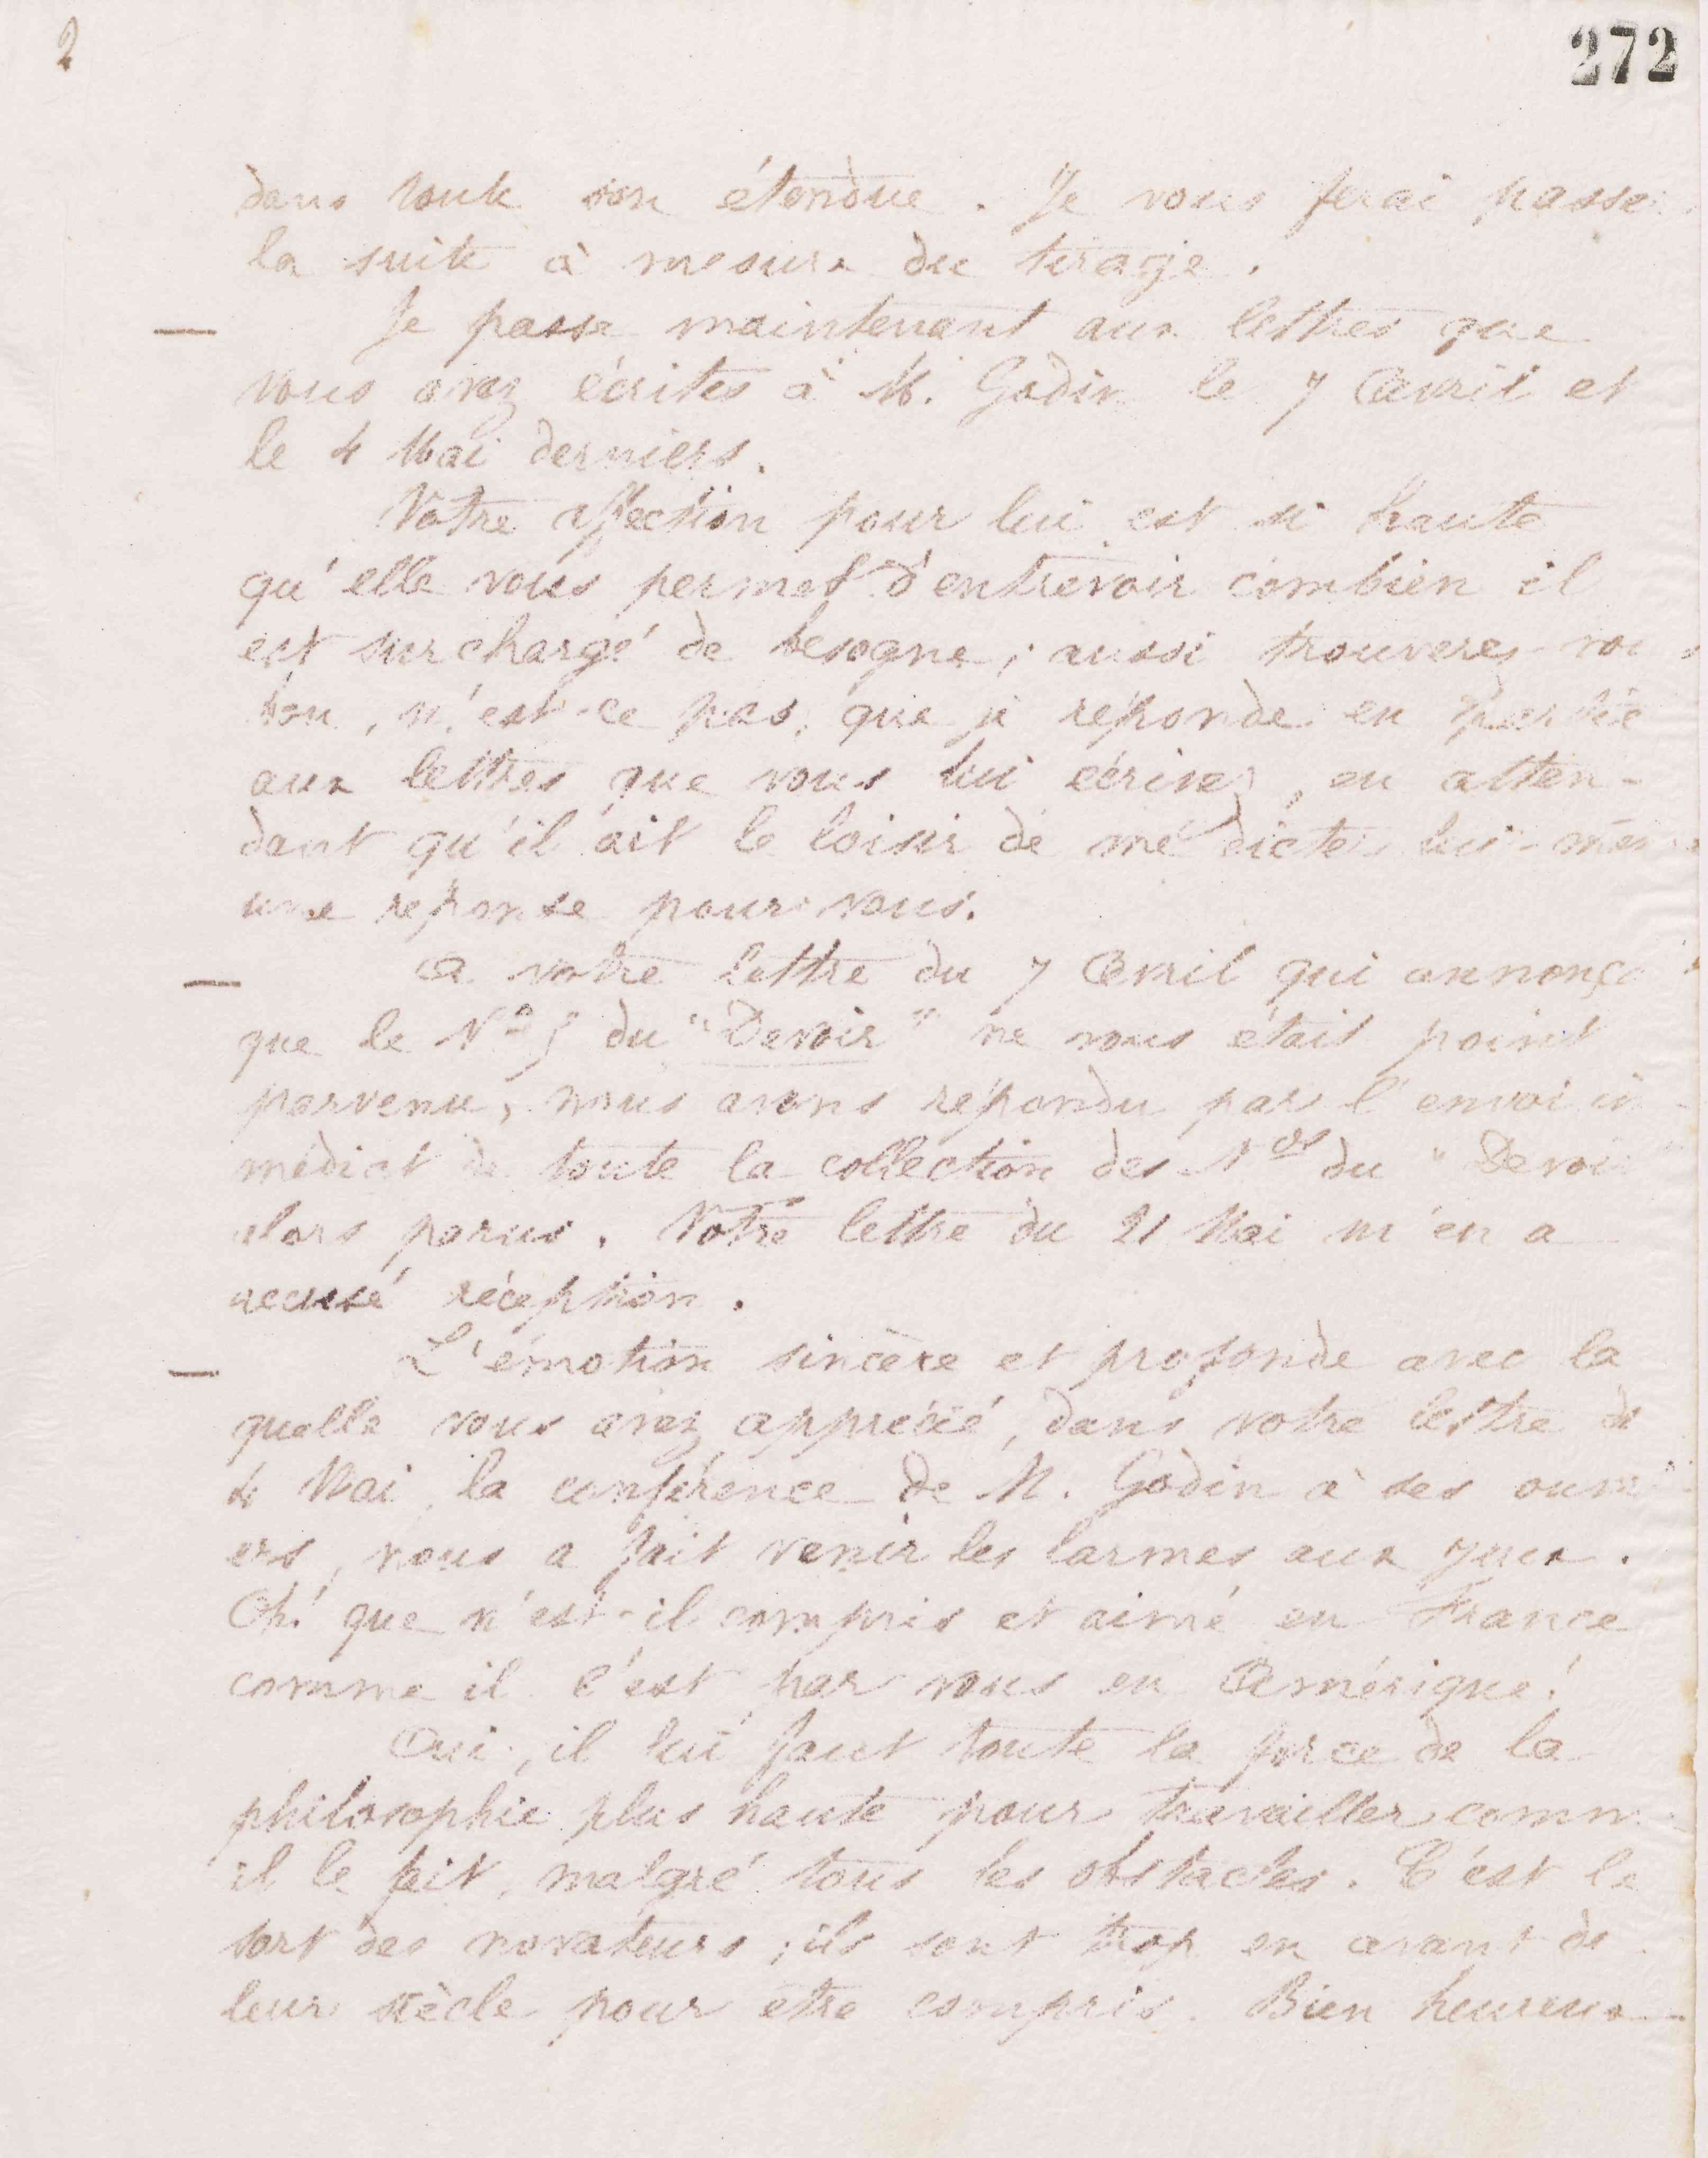 2
272
dans toute son étendue. Je vous ferai passer
la suite à mesure du tirage.
— Je passe maintenant aux lettres que
vous avez écrites à M. Godin le 7 Avril et
le 4 Mai derniers.
Votre affection pour lui est si haute
qu'elle vous permet d'entrevoir combien il
est surchargé de besogne; aussi trouverez-vous
bon, n'est-ce pas, que je réponde en partie
aux lettres que vous lui écrivez, en atten-
dant qu'il ait le loisir de me dicter lui-même
une réponse pour vous.
— A votre lettre du 7 Avril qui annonça
que le N° 5 du "Devoir" ne vous était point
parvenu, nous avons répondu par l'envoi im-
médiat de toute la collection des Nos du "Devoir"
alors parus. Votre lettre du 21 Mai m'en a
accusé réception.
— L'émotion sincère et profonde avec la
quelle vous avez apprécié, dans votre lettre du
4 Mai, la conférence de M. Godin à ses ouvri-
ers, nous a fait venir les larmes aux yeux.
Oh! que n'est-il compris et aimé en France
comme il l'est par vous en Amérique!
Oui, il lui faut toute la force de la
philosophie plus haute pour travailler comme
il le fait, malgré tous les obstacles. C'est le
sort des novateurs; ils sont trop en avant de
leur siècle pour être compris. Bien heureux